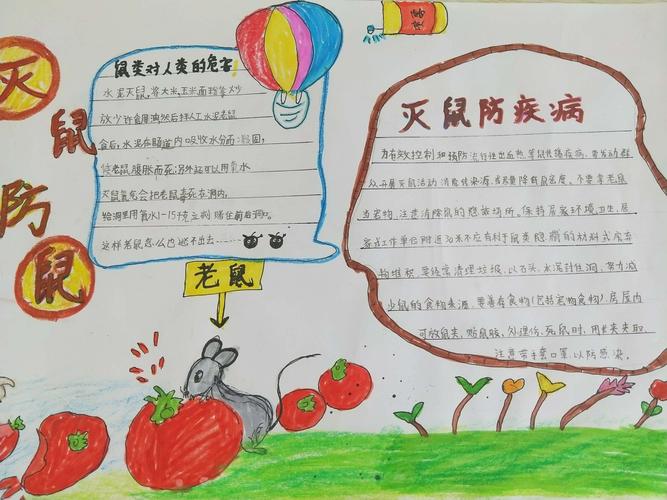 灭
鼠
防
鼠
鼠类对人类的危害
水泥灭鼠,将大米,玉米面粉等炒
放少许食用油然后拌入水泥老鼠
食后,水泥在肠道内吸收水分而凝固,
使老鼠腹胀而死;另外还可以用氨水
灭鼠氨气会把老鼠毒死在洞内,
给洞里用氨水1-15千克立刻堵住前后洞口。
这样老鼠怎么也逃不出去
老鼠
灭鼠防疾病
为有效控制和预防流行性出血热,等鼠传播疾病,要发动群
众开展灭鼠活动消除传染源,或尽量降低鼠密度。不要拿老鼠
当宠物,注意清除鼠的隐蔽场所,保持居家环境卫生,居
家或工作单位附近30米不应有利于鼠类隐蔽的材料或废弃
物堆积,要经常清理垃圾,以石头、水泥封住洞,努力减
少鼠的食物来源,要善存食物(包括宠物食物),房屋内
可放鼠类,贴鼠胶,处理伤、死鼠时,用长夹夹取,
注意带手套口罩,以防感染。